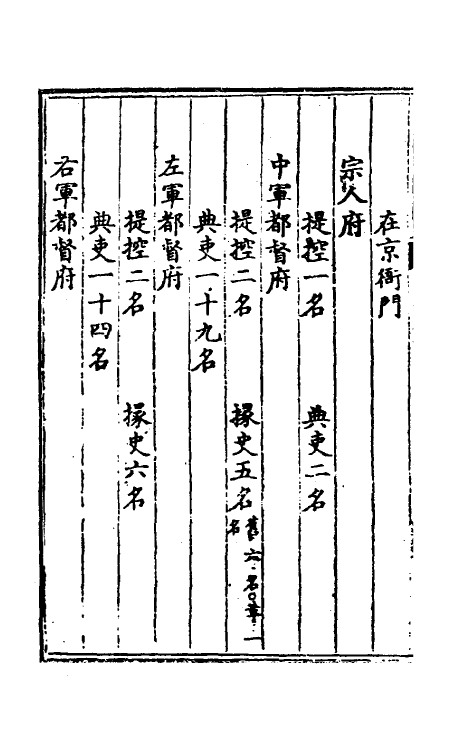 在京衙門
宗人府
提控一名　典吏二名
中軍都督府
提控二名　掾史五名舊六名○革一名
典吏一十九名
左軍都督府
提控二名　掾史六名
典吏一十四名
右軍都督府